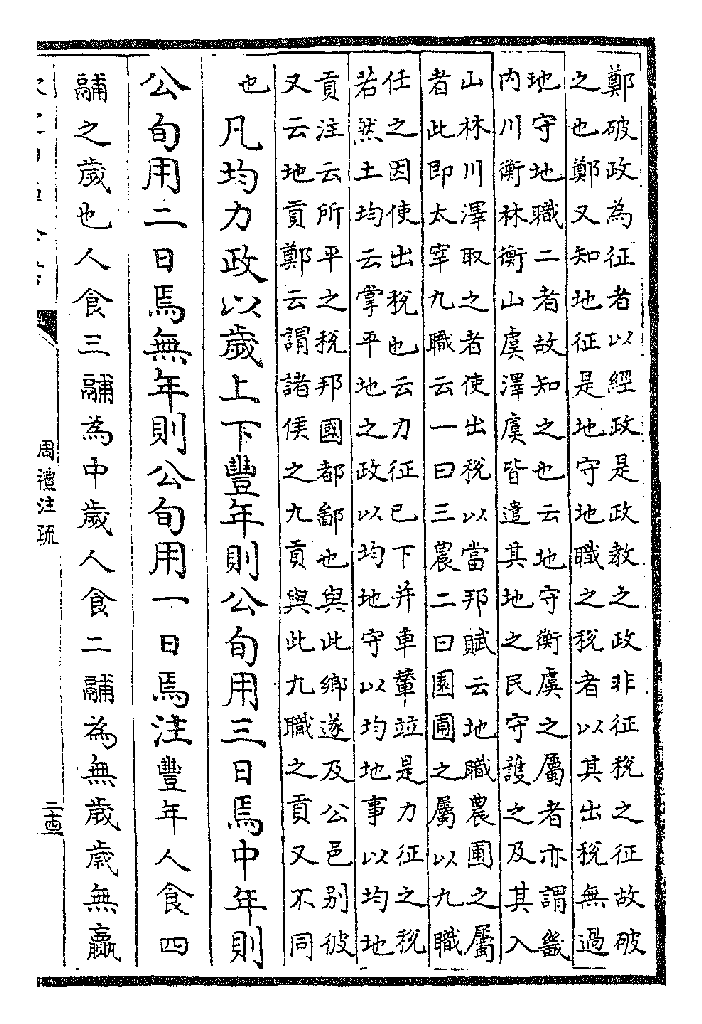 鄭破政為征者以經政是政教之政非征稅之征故破
之也鄭又知地征是地守地職之稅者以其出稅無過
地守地職二者故知之也云地守衡虞之屬者亦謂畿
内川衡林衡山虞澤虞皆遣其地之民守護之及其入
山林川澤取之者使出稅以當邦賦云地職農圃之屬
者此即太宰九職云一曰三農二曰園圃之屬以九職
任之因使出稅也云力征已下并車輦竝是力征之稅
若然土均云掌平地之政以均地守以均地事以均地
貢注云所平之稅邦國都鄙也與此鄉遂及公邑别彼
又云地貢鄭云謂諸侯之九貢與此九職之貢又不同
也凡均力政以歲上下豐年則公旬用三日焉中年則
公旬用二日焉無年則公旬用一日焉注豐年人食四
鬴之歲也人食三鬴為中歲人食二鬴為無歲歲無贏
周禮注疏